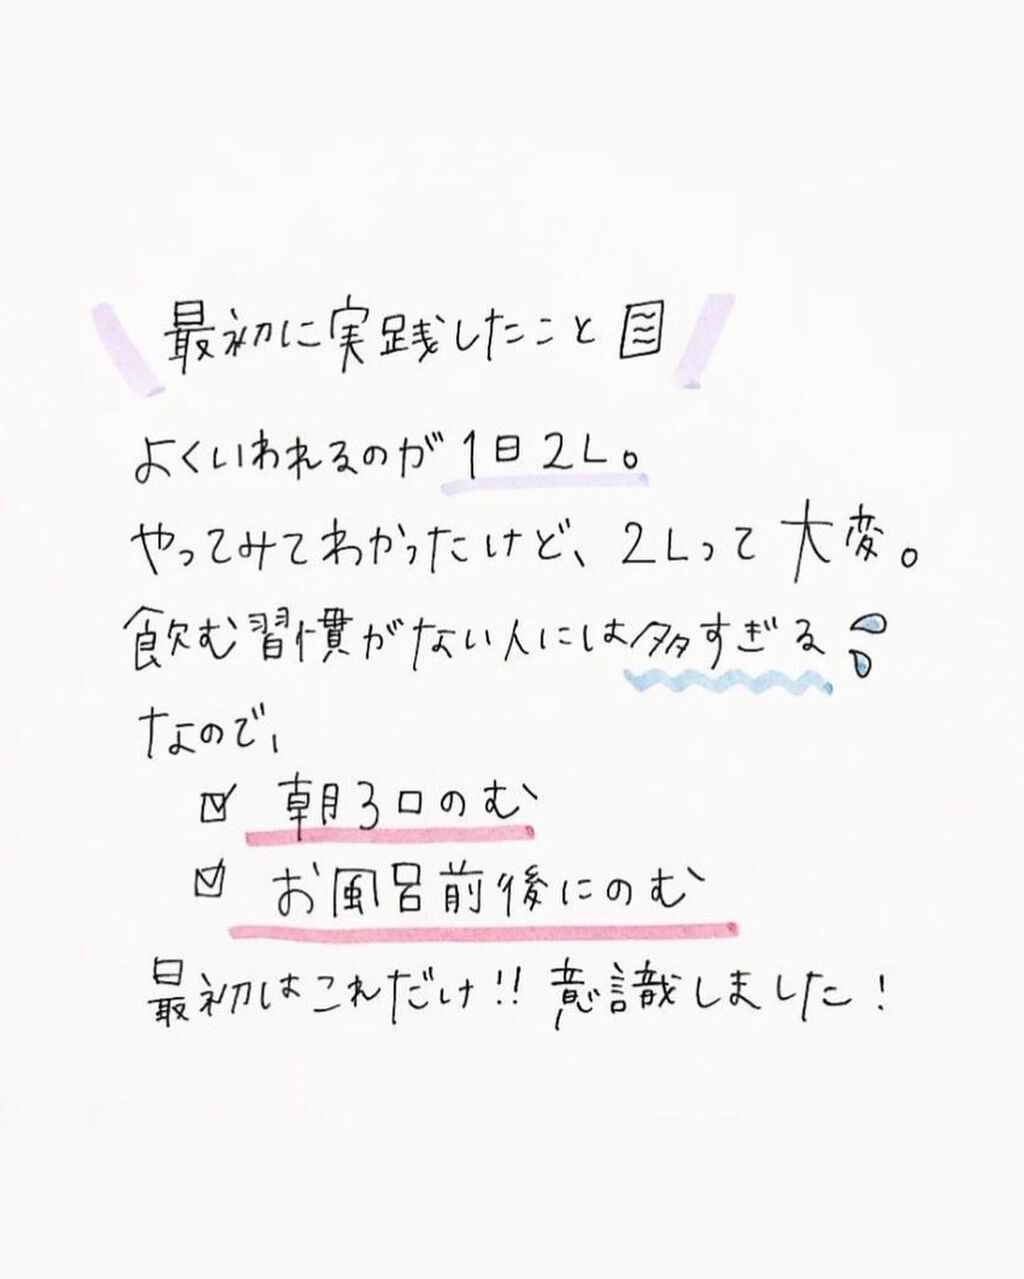 最初に実践したこと
よくいわれるのが1日2L。
やってみてわかったけど、2Lって大変。
飲む習慣がない人には多すぎる
なので、
朝3口のむ
お風呂前後にのむ
最初はこれだけ!!意識しました!